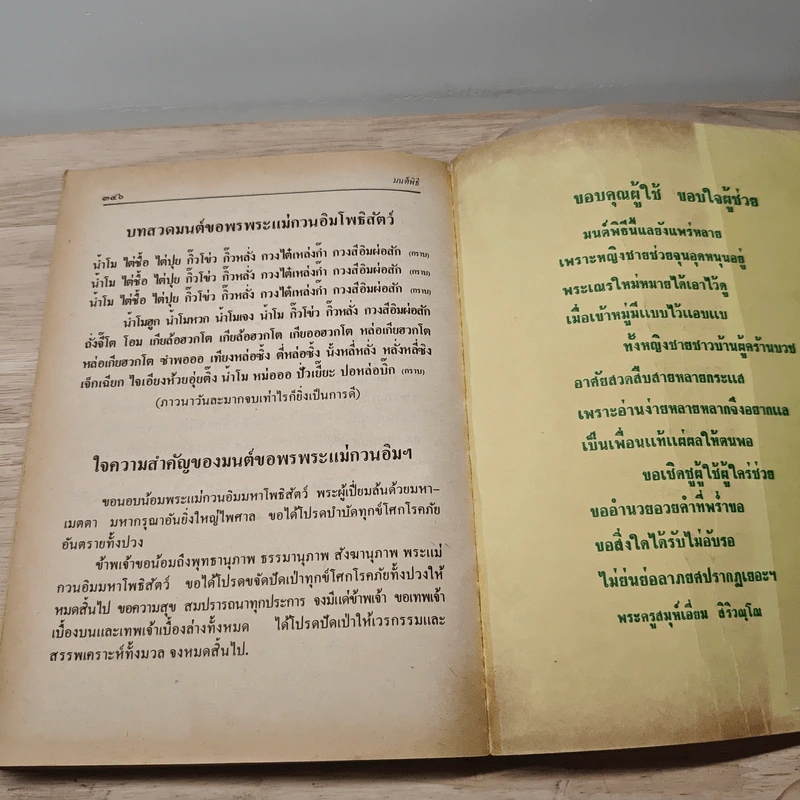 ๓๔๖
มนต์พิธี
บทสวดมนต์ขอพรพระแม่กวนอิมโพธิสัตว์
น้ำโม ไต่ซื้อ ไต่ปุย กิ๊วโข่ว กิ๊วหลั่ง กวงไต๋เหล่งก๊ำ กวงสีอิมผ่อสัก (กราบ)
น้ำโม ไต่ซื้อ ไต่ปุย กิ๊วโข่ว กิ๊วหลั่ง กวงไต๋เหล่งก๊ำ กวงสีอิมผ่อสัก (กราบ)
น้ำโม ไต่ซื้อ ไต่ปุย กิ๊วโข่ว กิ๊วหลั่ง กวงไต๋เหล่งก๊ำ กวงสีอิมผ่อสัก (กราบ)
น้ำโมฮูก น้ำโมหวก น้ำโมเจง น้ำโม กิ๊วโข่ว กิ๊วหลั่ง กวงสีอิมผ่อสัก
ถั่งจี้โต โอม เกียล้อฮวกโต เกียล้อฮวกโต เกียออฮวกโต หล่อเกียฮวกโต
หล่อเกียฮวกโต ซ่าพอออ เทียงหล่อซิ้ง ตี่หล่อซิ้ง นั้งหลี่หลั่ง หลั่งหลี่ซิง
เจ็กเฉียก ไจเอียงห้วยอุ่ยติ๋ง น้ำโม หม่อออ ปัวเยี๊ยะ ปอหล่อบิ๊ก (กราบ)
(ภาวนาวันละมากจบเท่าไรก็ยิ่งเป็นการดี)
ใจความสำคัญของมนต์ขอพรพระแม่กวนอิมฯ
ขอนอบน้อมพระแม่กวนอิมมหาโพธิสัตว์ พระผู้เปี่ยมล้นด้วยมหา–
เมตตา มหากรุณาอันยิ่งใหญ่ไพศาล ขอได้โปรดบำบัดทุกข์โศกโรคภัย
อันตรายทั้งปวง
ข้าพเจ้าขอน้อมถึงพุทธานุภาพ ธรรมานุภาพ สังฆานุภาพ พระแม่
กวนอิมมหาโพธิสัตว์ ขอได้โปรดขจัดปัดเป่าทุกข์โศกโรคภัยทั้งปวงให้
หมดสิ้นไป ขอความสุข สมปรารถนาทุกประการ จงมีแด่ข้าพเจ้า ขอเทพเจ้า
เบื้องบนและเทพเจ้าเบื้องล่างทั้งหมด ได้โปรดปัดเป่าให้เวรกรรมและ
สรรพเคราะห์ทั้งมวล จงหมดสิ้นไป.
ขอบคุณผู้ใช้ ขอบใจผู้ช่วย
มนต์พิธีนี้แลยังแพร่หลาย
เพราะหญิงชายช่วยจุนอุดหนุนอยู่
พระเณรใหม่หมายได้เอาไว้ดู
เมื่อเข้าหมู่มีแบบไว้แอบแบ
ทั้งหญิงชายชาวบ้านผู้คร้านบวช
อาศัยสวดสืบสายหลายกระแส
เพราะอ่านง่ายหลายหลากจึงอยากแล
เป็นเพื่อนแท้แผ่ผลให้ตนพอ
ขอเชิดชูผู้ใช้ผู้ใคร่ช่วย
ขออำนวยอวยคำที่พร่ำขอ
ขอสิ่งใดได้รับไม่อับรอ
ไม่ย่นย่อลาภยสปรากฏเยอะฯ
พระครูสมุห์เอี่ยม สิริวณฺโณ